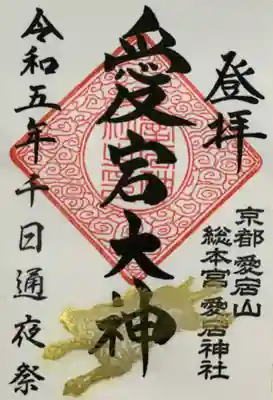 登拝
京都愛宕山
総本宮愛宕神社
愛宕大神
令和五年千日通夜祭